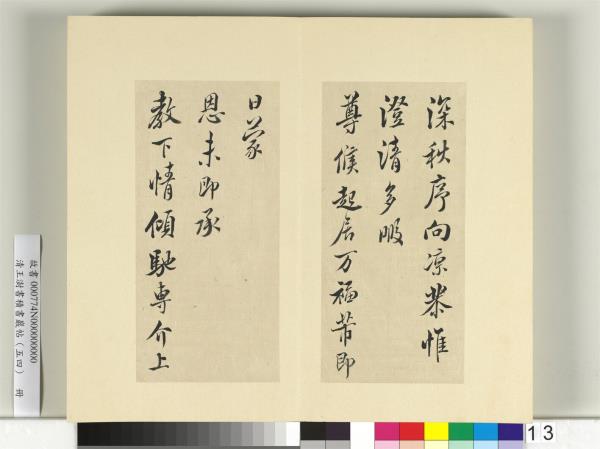 深秋序向涼恭惟
澄清多暇
尊候起居万福芾即
日蒙
恩未即承
教下情傾馳專介上
故書000774N000000000
清王澍書積書巖帖（五四） 冊
13